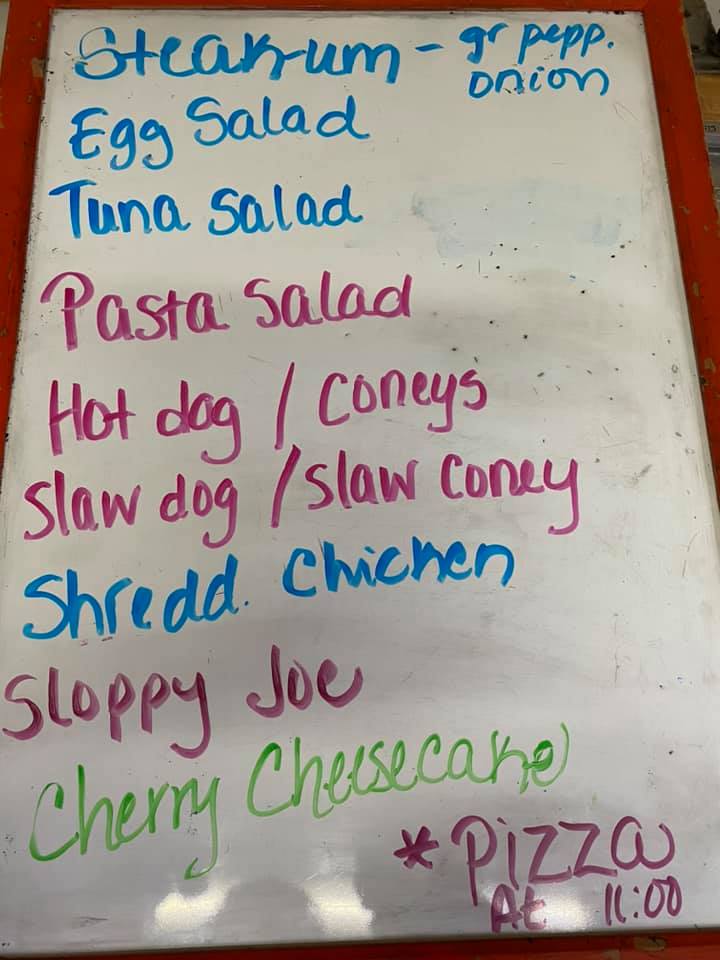 Steak-um - gr pepp.
onion
Egg Salad
Tuna Salad
Pasta Salad
Hot dog / Coneys
Slaw dog / Slaw Coney
Shredd. Chicken
Sloppy Joe
Cherry Cheesecake
* Pizza
At 11:00